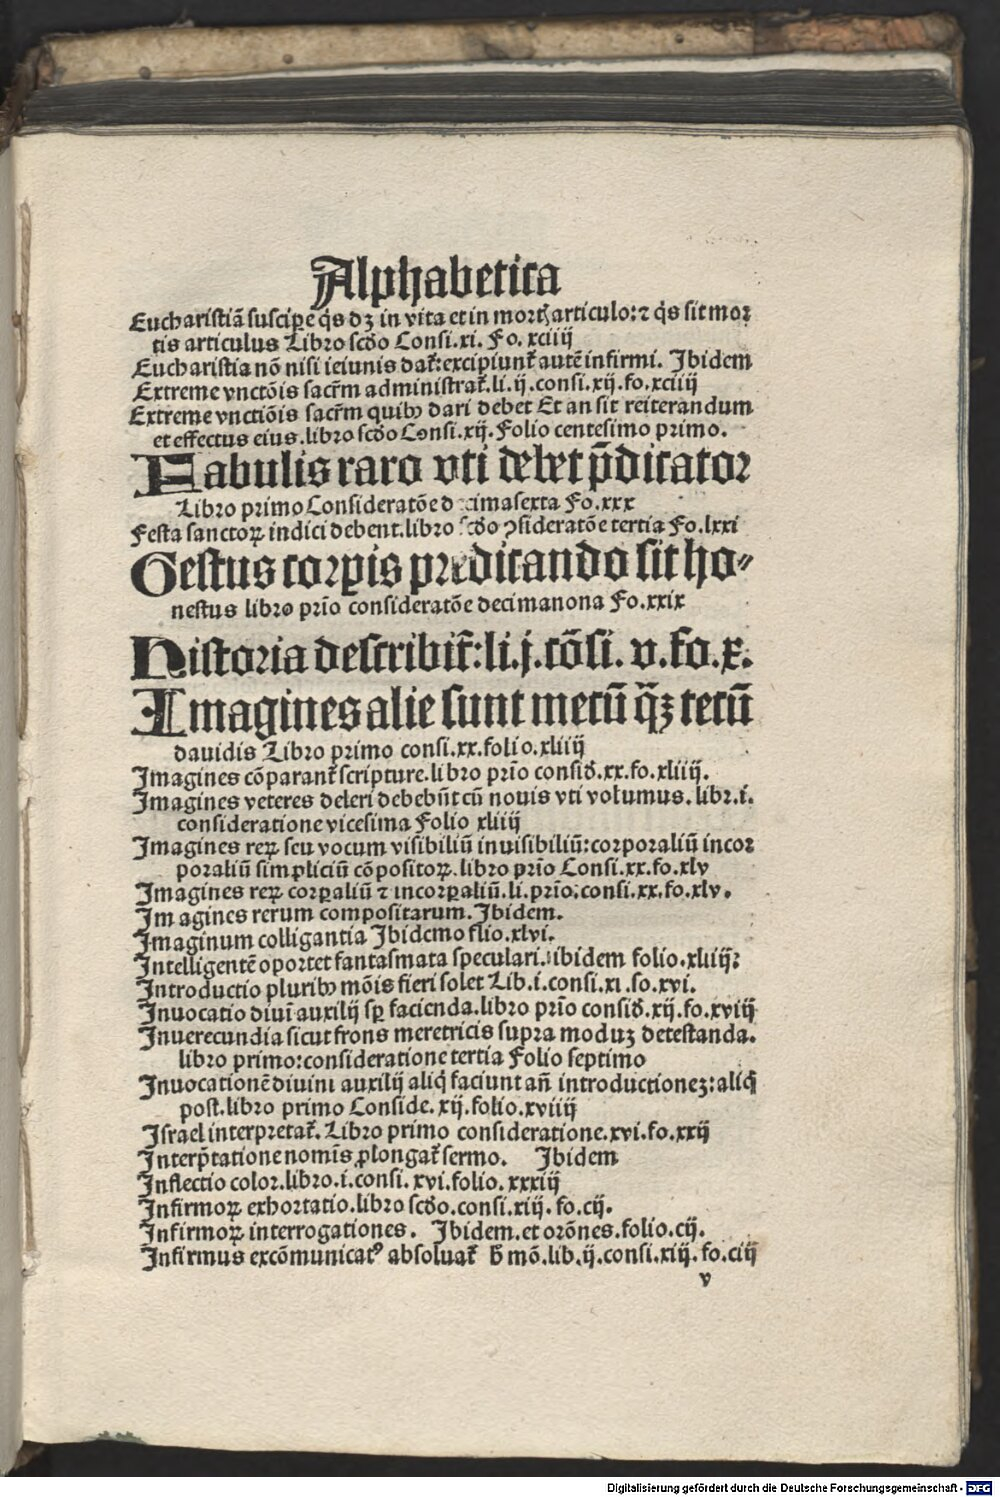 Alphabetica
Eucharistiā suscipe q̇s dꝫ in vita et in mortꝭ articulo: ⁊ q̇s sit mor
tis articulus Libro scd̄o Consi. xi. Fo. xciiij
Eucharistia nō nisi ieiunis dat᷑: excipiunt᷑ autē infirmi. Ibidem
Extreme vnctōis sacr̄m administrat᷑. li. ij. consi. xij. fo. xciiij
Extreme vnctiōis sacr̄m quibꝰ dari debet Et an sit reiterandum
et effectus eius. libro scd̄o Consi. xij. Folio centesimo primo.
Fabulis raro vti debet p̄dicator
Libro primo Consideratōe decimasexta Fo. xxx
Festa sanctoꝝ indici debent. libro scd̄o ꝯsideratōe tertia Fo. lxxi
Gestus corꝑis predicando sit ho-
nestus libro prīo consideratōe decimanona Fo. xxix
Historia describit᷑: li. j. cōsi. v. fo. x.
Imagines alie sunt mecū q̄ꝫ tecū
dauidis Libro primo consi. xx. folio. xliiij
Imagines cōparant᷑ scripture. libro prīo consid̄. xx. fo. xliiij.
Imagines veteres deleri debebūt cū nouis vti volumus. libr. i.
consideratione vicesima Folio xliiij
Imagines reꝝ seu vocum visibiliū inuisibiliū: corporaliū incor
poraliū simpliciū cōpositoꝝ. libro prīo Consi. xx. fo. xlv
Imagines reꝝ corꝑaliū ⁊ incorꝑaliū. li. prīo: consi. xx. fo. xlv.
Imagines rerum compositarum. Ibidem.
Imaginum colligantia Ibidemo flio. xlvi.
Intelligentē oportet fantasmata speculari. ibidem folio. xliiij:
Introductio pluribꝰ mōis fieri solet Lib. i. consi. xi. fo. xvi.
Inuocatio diuī auxilij sꝑ facienda. libro prīo consid̄. xij. fo. xviij
Inuerecundia sicut frons meretricis supra moduꝫ detestanda.
libro primo: consideratione tertia Folio septimo
Inuocationē diuini auxilij aliq̇ faciunt añ introductioneꝫ: aliq̇
post. libro primo Conside. xij. folio. xviiij
Israel interpretat᷑. Libro primo consideratione. xvi. fo. xxij
Interp̄tatione nomīs ꝓlongat᷑ sermo. Ibidem
Inflectio color. libro. i. consi. xvi. folio. xxxiij
Infirmoꝝ exhortatio. libro scd̄o. consi. xiij. fo. cij.
Infirmoꝝ interrogationes. Ibidem. et orōnes. folio. cij.
Infirmus excōmunicatꝰ absoluat᷑ h̄ mō. lib. ij. consi. xiij. fo. ciij
v
Digitalisierung gefördert durch die Deutsche Forschungsgemeinschaft - DFG